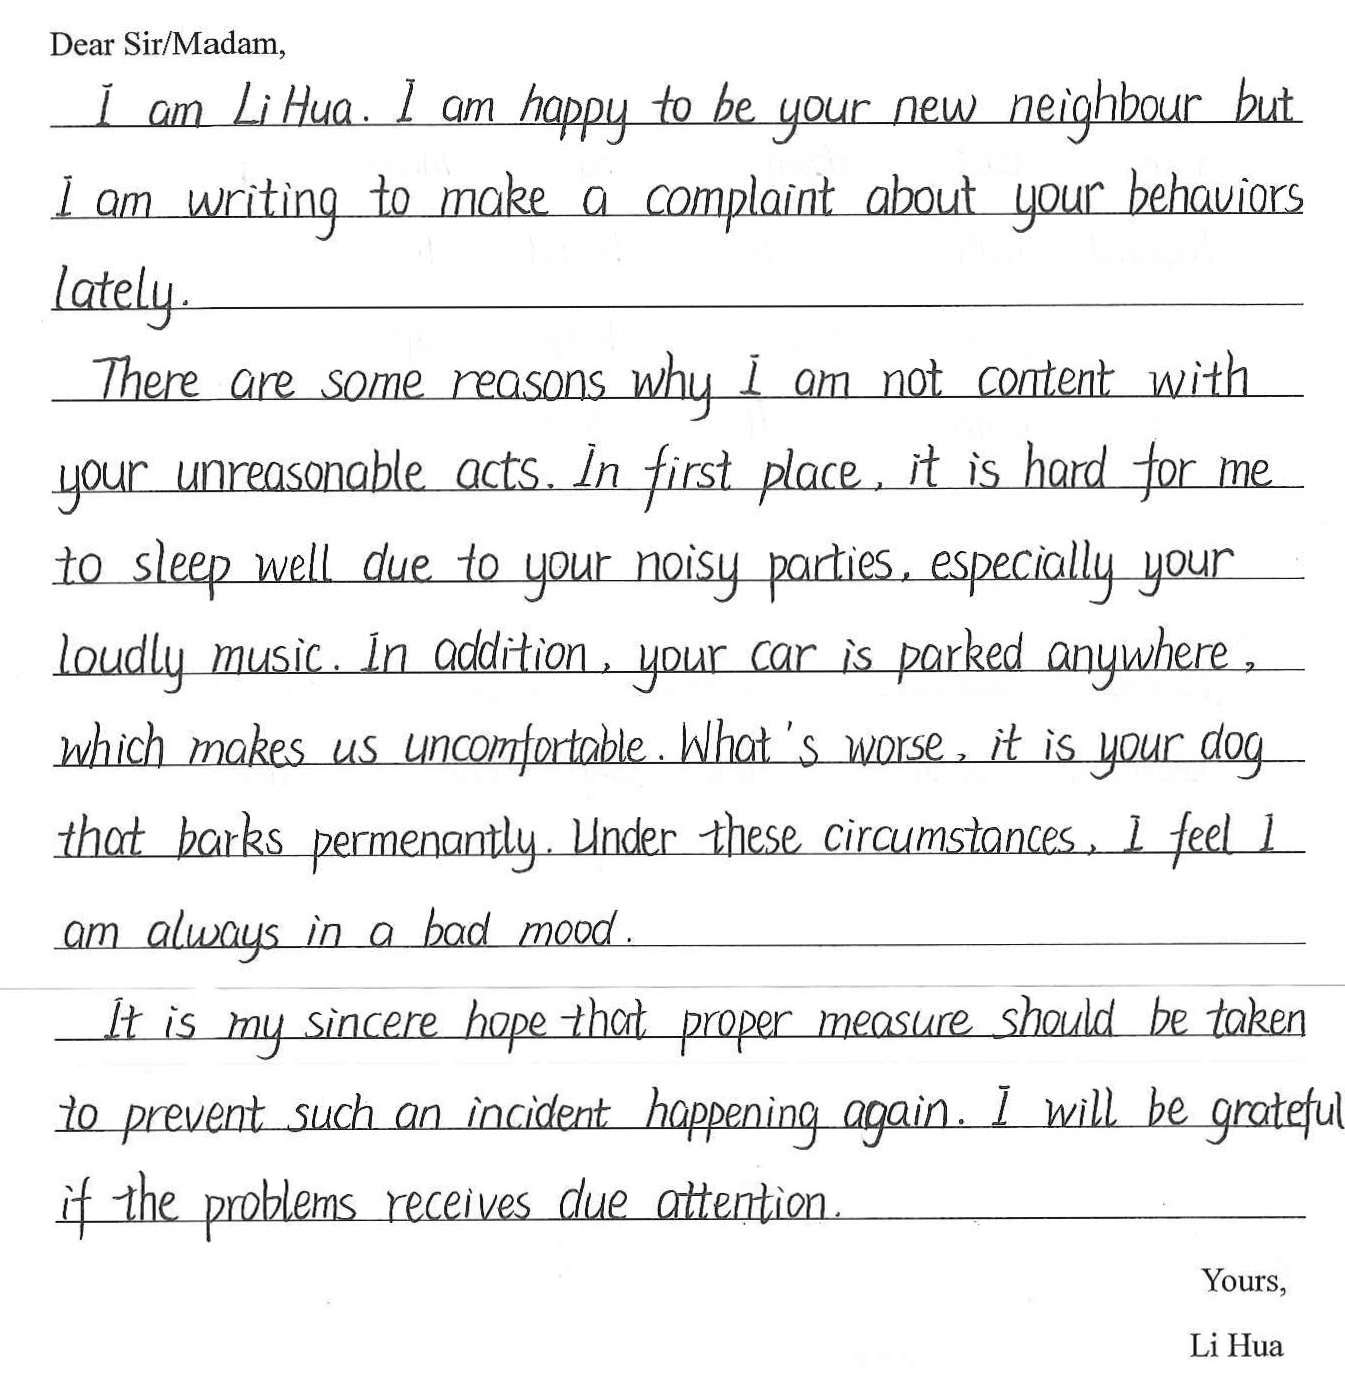 Dear Sir/Madam,
I am Li Hua. I am happy to be your new neighbour but
I am writing to make a complaint about your behaviors
lately.
There are some reasons why I am not content with
your unreasonable acts. In first place, it is hard for me
to sleep well due to your noisy parties, especially your
loudly music. In addition, your car is parked anywhere,
which makes us uncomfortable. What's worse, it is your dog
that barks permenantly. Under these circumstances, I feel I
am always in a bad mood.
It is my sincere hope that proper measure should be taken
to prevent such an incident happening again. I will be grateful
if the problems receives due attention.
Yours,
Li Hua